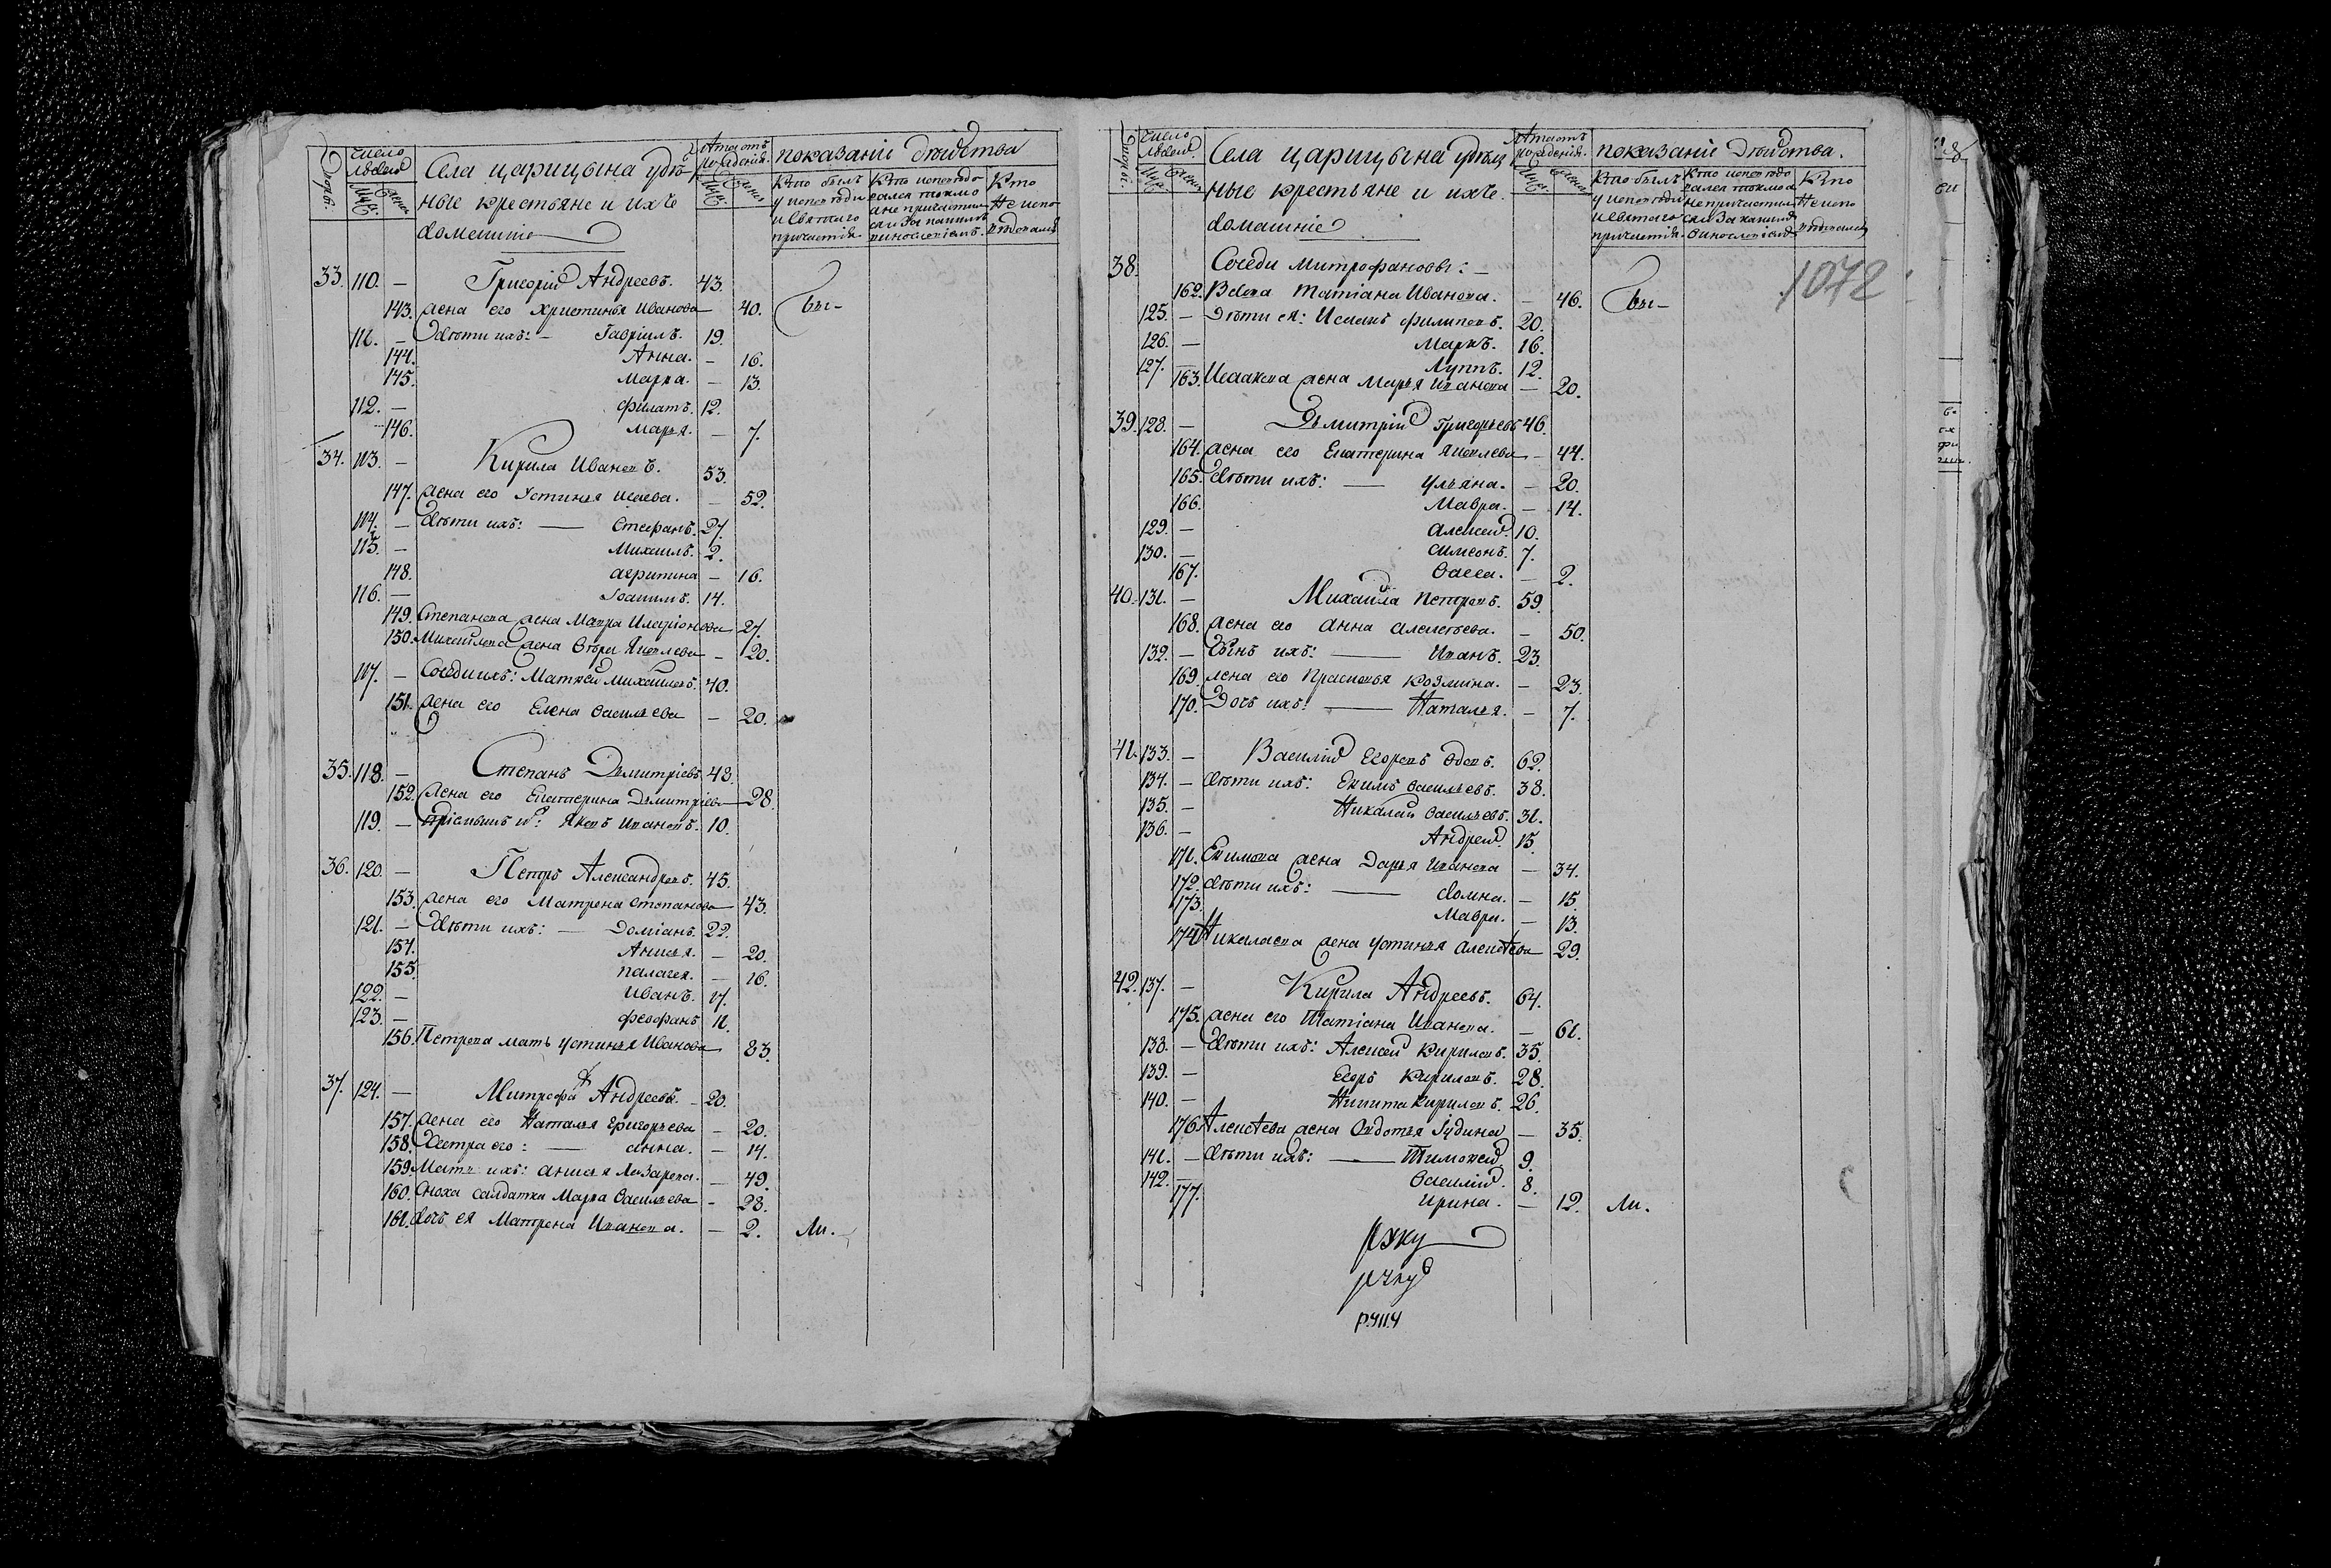 число людей
Села царицына удѣль
ныя крестьяне и ихъ
домашніе
показаніе действа
Кто былъ
у исповѣди
и святаго
причастія
Кто
не испо
33. 110. — Григорій Андреевъ. 43.
143. жена его христинья Иванова 40. бы-
111. — Дѣти ихъ: — Гавріилъ. 19.
144. Анна. — 16.
145. Марѳа. — 13.
112. — филатъ. 12.
146. марья. — 7.
34. 113. — Кирила Ивановъ. 53.
147. жена его Устинья Исаева. — 52.
114. — дѣти ихъ: — Стефанъ. 27.
115. — Михаилъ. 2
148. агрипина — 16.
116. — Іоакимъ. 14.
149. Степанова жена Мавра Иларіонова 27.
150. Михайлова жена Яковлева — 20.
117. — Соседи ихъ: Матвей Михайловъ. 40.
151. жена его Елена васильева — 20.
35. 118. — Степанъ Дмитріевъ. 43.
152. жена его Екатерина Дмитріева 28.
119. — Яковъ Ивановъ. 10.
36. 120. — Петръ Александровъ. 45.
153. жена его Матрена Степанова 43.
121. — Дѣти ихъ: — Доміанъ. 22.
154. Анисья. — 20.
155. палагея. — 16.
122. — иванъ. 17.
123. — феофанъ 11.
156. Петрова мать устинья Иванова 83.
37. 124. — Митрофа Андреевъ. — 20.
157. жена его Наталья Григорьева — 20.
158. Сестра его: — анна. — 14.
159. Мать ихъ: анисья Лазарева. — 49.
160. Сноха салдатка Марѳа васильева — 28.
161. дочь ея Матрена Иванова. — 2. ли.
число людей
Села царицына удѣль
ныя крестьяне и ихъ
домашніе
показаніе действа.
Кто былъ
у исповѣди
и святаго
причастія.
Кто
не испо
1072
38. Соседи митрофановы: —
162. Вдова татіана Иванова. — 46. бы-
125. — Дѣти ея: Исаакъ филиповъ. 20.
126. — Маркъ. 16.
127. — Луппъ. 12.
163. Исаакова жена Марья Иванова — 20.
39. 128. — Дмитрій григорьевъ 46.
164. жена его Екатерина Яковлева — 44.
165. дѣти ихъ: — ульяна. — 20.
166. Мавра. — 14.
129. — алексей. 10.
130. — симеонъ. 7.
167. васса. — 2.
40. 131. — Михайла Петровъ. 59.
168. жена его анна алексеева. — 50.
132. — Сынъ ихъ: — Иванъ. 23.
169. жена его Прасковья козмина. — 23.
170. Дочь ихъ: — Наталья. — 7.
41. 133. — Василій Егоровъ вдовъ. 62.
134. — дѣти ихъ: Екимъ васильевъ. 38.
135. — Николай васильевъ. 31.
136. — Андрей. 15.
171. Екимова жена Дарья Иванова — 34.
172. дѣти ихъ: — домна. — 15.
173. Мавра. — 13.
174. Николаева жена устинья алексеева 29.
42. 137. — Кирила Андреевъ. 64.
175. жена его Татіана Иванова. — 61.
138. — дѣти ихъ: Алексей Кириловъ. 35.
139. — Егоръ Кириловъ. 28.
140. — Никита кириловъ. 26.
176. Алексеева жена Овдотья Іудина — 35.
141. — дѣти ихъ: — Тимофей 9.
142. — василій. 8.
177. ирина. — 12. ли.